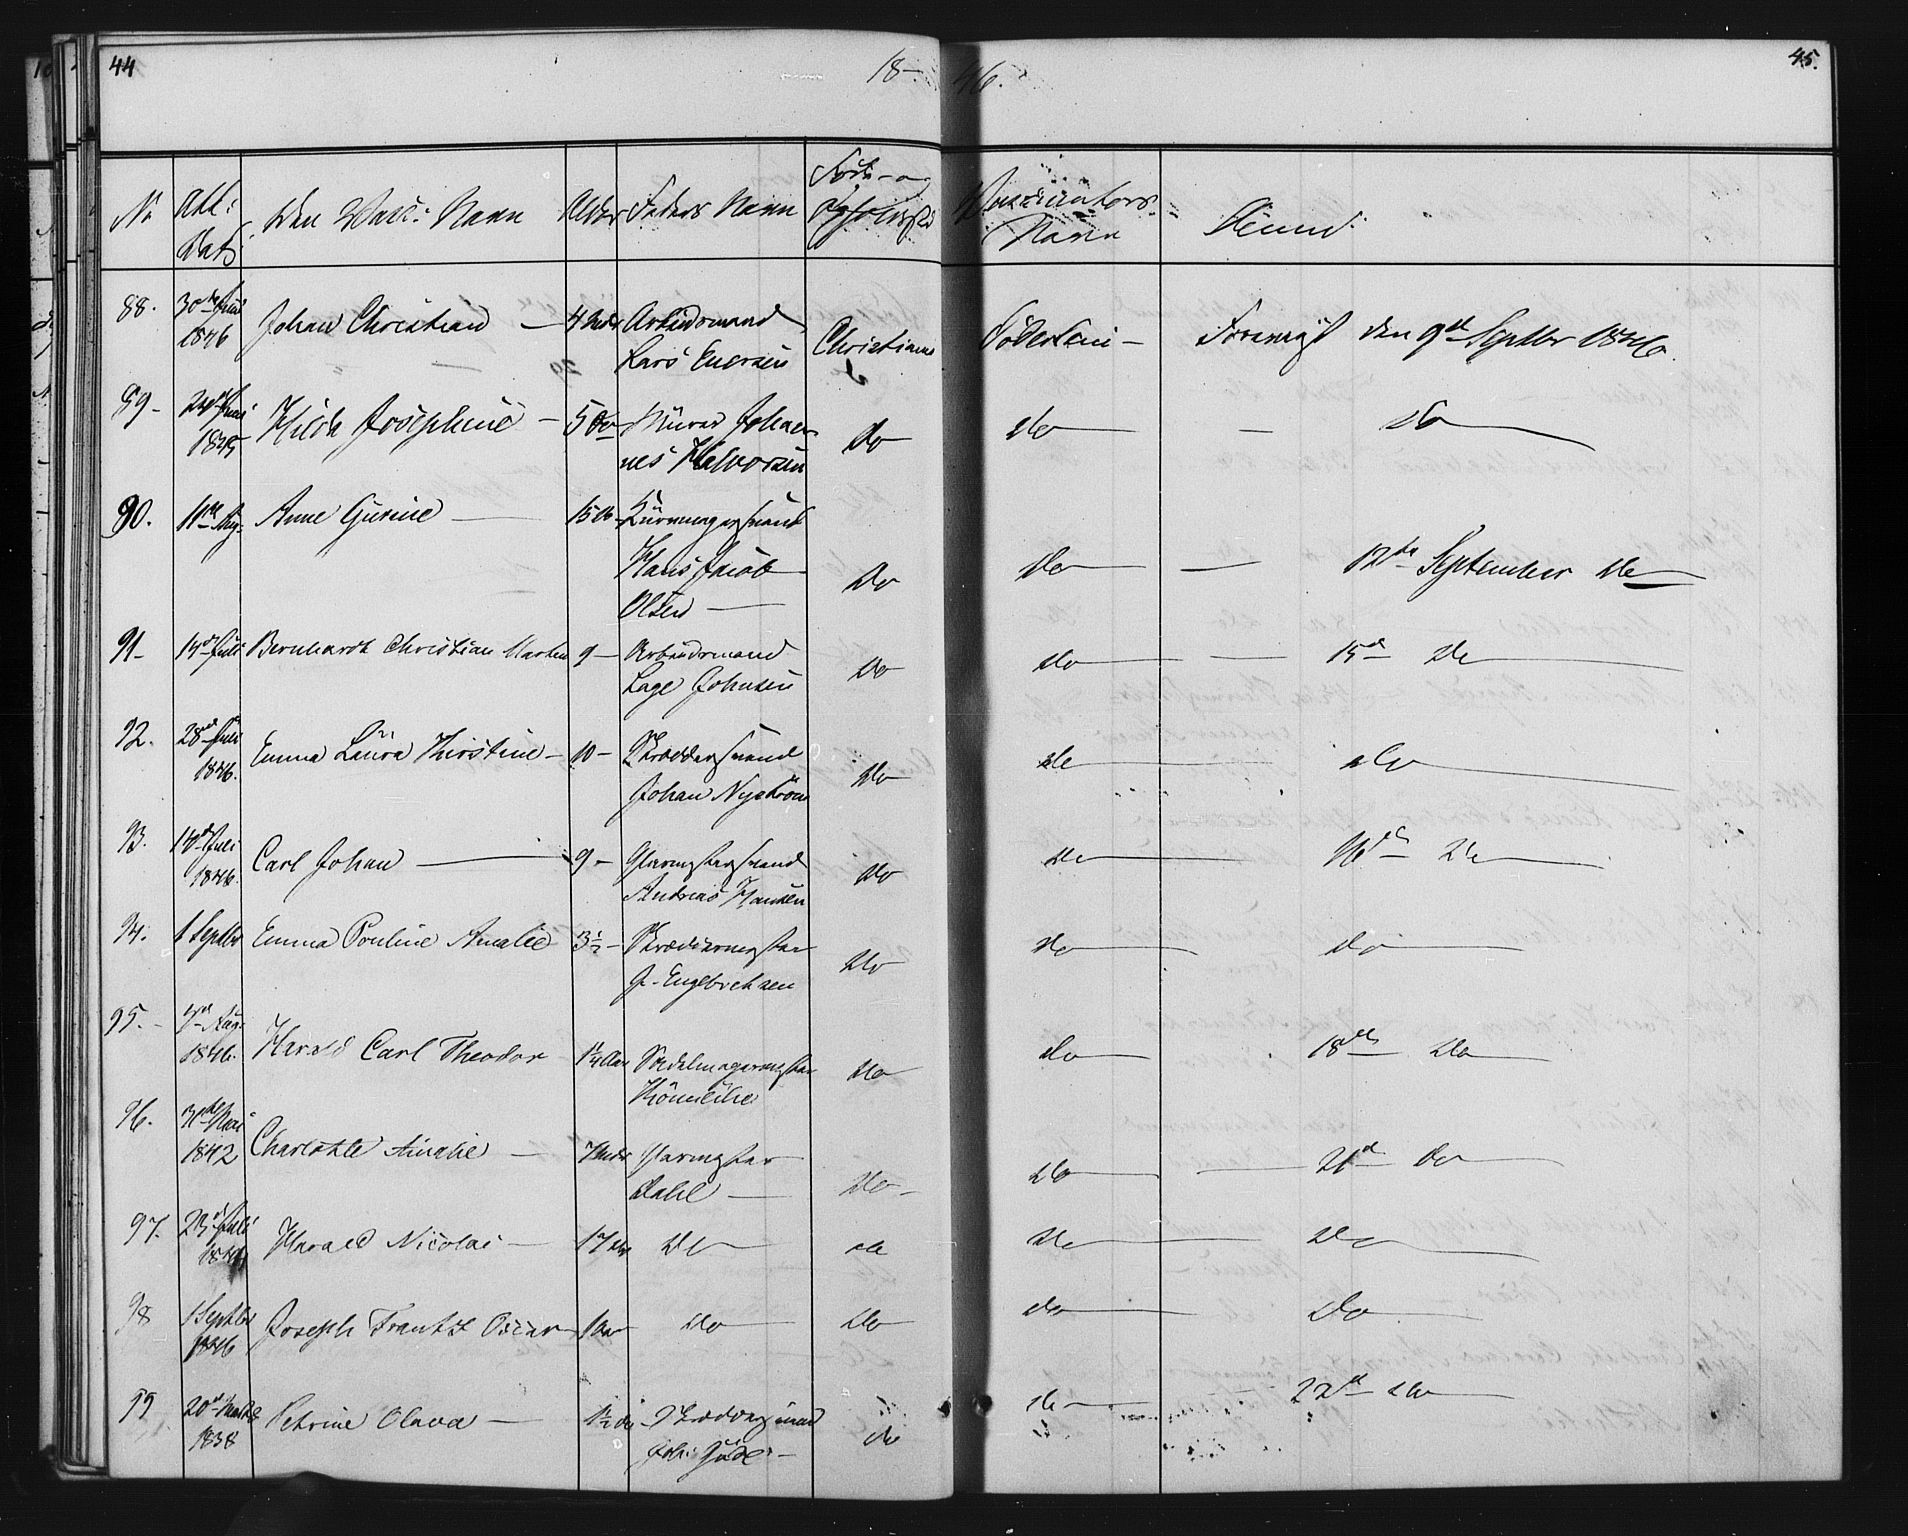 44
18-
46.
45.
No
Att:
Dats
Den Vacc: Navn
Alder
Faders Navn
Føde- og
Opholdssted
Vaccinators
Navn
Anm:
88. 30te Juni Johan Christian — 4 Mdr Arbeidsmand Christiania Söderlein — Foreviist den 9de Septbr 1846.
1846 Lars Enersen
89 - Juni Hilda Josephine — 5 Do Murer Johan- Do Do — — Do
nes Halvorsen
90. 11te Aug. Anne Gurine — 15 Do
Hans Jacob Do Do — — 12te September Do
Olsen —
91 - 14de Juli Bernhardt Christian Marten 9 — Arbeidsmand Do Do — — 15de Do
Lage Johnsen
92. 28de Juli Emma Laura Kirstine — 10 — Skræddersvend Do Do — Do
1846. Johan Nyström
93. 14de Juli Carl Johan — 9 — Glarmestersvend Do Do — 16de Do
1846. Andreas Hansen
94. 1 Septbr Emma Pouline Amalie 3½ — Skrædermester Do Do — Do
J. Engebrethsen
95. - 7de Aug. Harald Carl Theodor 1¼ Aar Sadelmagermester Do Do — 18de Do
1846.
96. 31te Mai Charlotte Amalie — 7 Mdr Do Do — 21de Do
1842 Dahl —
97. 23de Juli Harald Nicolai — 17 Do Do Do — Do
98 1 Septbr Joseph Frantz Oscar 1 Aar Do Do Do — Do
1846
99 20de Petrine Olava — 1½ Do Skræddersvend Do Do — 22de Do
1838 Joh: Gude —